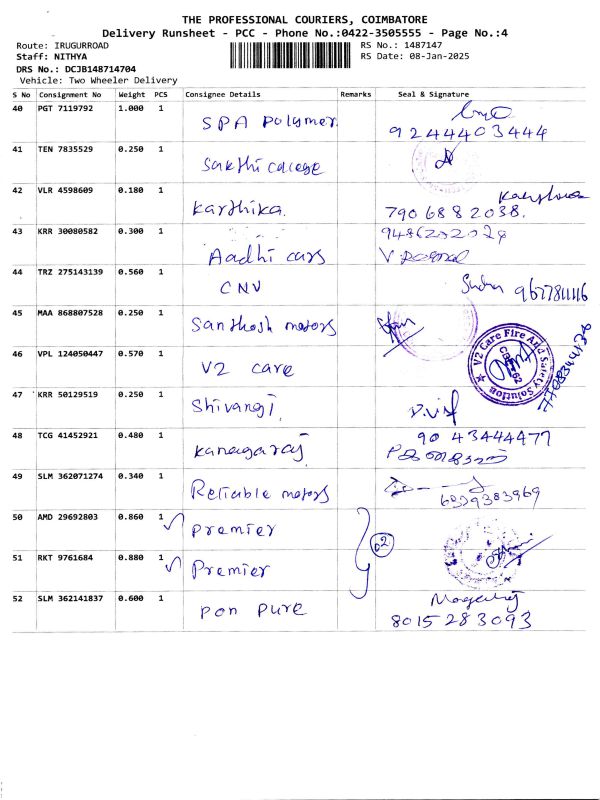 THE PROFESSIONAL COURIERS, COIMBATORE
Delivery Runsheet - PCC - Phone No.:0422-3505555 - Page No.:4
Route: IRUGURROAD
RS No.: 1487147
Staff: NITHYA
RS Date: 08-Jan-2025
DRS No.: DCJB148714704
Vehicle: Two Wheeler Delivery
S No Consignment No Weight PCS Consignee Details Remarks Seal & Signature
40 PGT 7119792 1.000 1 SPA Polymer 9244403444
41 TEN 7835529 0.250 1 Sakthi college
42 VLR 4598609 0.180 1 Karthika. 7906882038.
43 KRR 30080582 0.300 1 Aadhi cars
44 TRZ 275143139 0.560 1 CNV
45 MAA 868807528 0.250 1 Santhosh motors
46 VPL 124050447 0.570 1 V2 care V2 Care Fire And Safety Solution
47 KRR 50129519 0.250 1 Shivangi
48 TCG 41452921 0.480 1 Kanagaraj 9043444477
49 SLM 362071274 0.340 1 Reliable motors
50 AMD 29692803 0.860 1 Premier
02
51 RKT 9761684 0.880 1 Premier
52 SLM 362141837 0.600 1 Pon Pure 8015283093